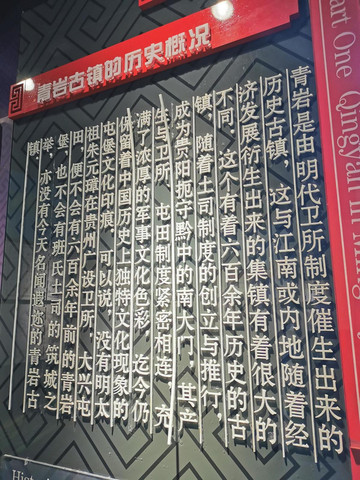 青岩古镇的历史概况
青岩是由明代卫所制度催生出来的
历史古镇，这与江南或内地随着经
济发展衍生出来的集镇有着很大的
不同，这个有着六百余年历史的古
镇，随着土司制度的创立与推行，
成为贵阳扼守黔中的南大门，其产
生与卫所、屯田制度紧密相连，充
满了浓厚的军事文化色彩，迄今仍
保留着中国历史上独特文化现象的
屯堡文化印痕。可以说，没有明太
祖朱元璋在贵州广设卫所，大兴屯
田，便不会有六百余年前的青岩
堡，也不会有班氏土司的筑城之
举，亦没有今天名闻遐迩的青岩古
镇
art One Qingyan in